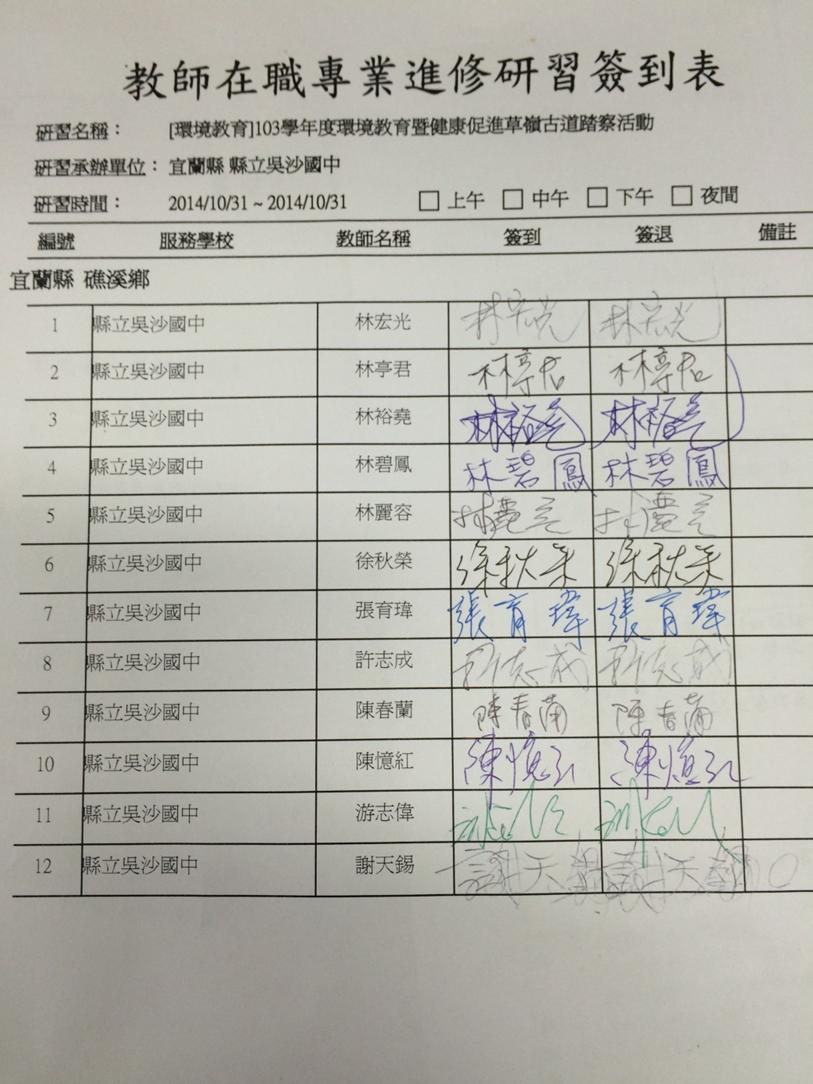 教師在職專業進修研習簽到表
研習名稱： [環境教育]103學年度環境教育暨健康促進草嶺古道踏察活動
研習承辦單位： 宜蘭縣 縣立吳沙國中
研習時間： 2014/10/31 ~ 2014/10/31 □ 上午 □ 中午 □ 下午 □ 夜間
編號 服務學校 教師名稱 簽到 簽退 備註
宜蘭縣 礁溪鄉
1 縣立吳沙國中 林宏光 林宏光 林宏光
2 縣立吳沙國中 林亭君 林亭君 林亭君
3 縣立吳沙國中 林裕堯 林裕堯 林裕堯
4 縣立吳沙國中 林碧鳳 林碧鳳 林碧鳳
5 縣立吳沙國中 林麗容 林麗容 林麗容
6 縣立吳沙國中 徐秋榮 徐秋荣 徐秋荣
7 縣立吳沙國中 張育瑋 張育瑋 張育瑋
8 縣立吳沙國中 許志成 許志成 許志成
9 縣立吳沙國中 陳春蘭 陳春蘭 陳春蘭
10 縣立吳沙國中 陳憶紅 陳憶紅 陳憶紅
11 縣立吳沙國中 游志偉
12 縣立吳沙國中 謝天錫 謝天錫 謝天錫